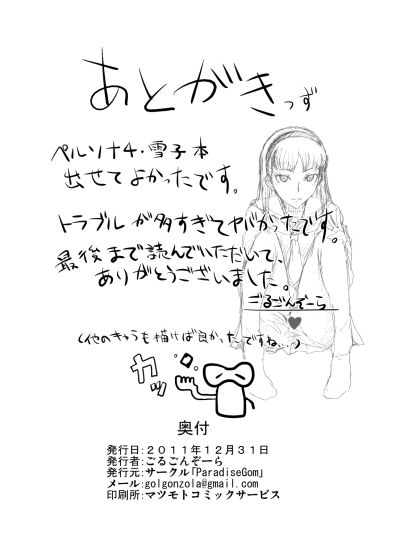 あとがきっず
ペルソナ4・雪子本
出せてよかったです。
トラブルが多すぎてヤバかったです。
最後まで読んでいただいて、
ありがとうございました。
ごるごんぞーら
(他のキャラも描けば良かったですね…)
カッ
奥付
発行日:２０１１年１２月３１日
発行者:ごるごんぞーら
発行元:サークル「ParadiseGom」
メール:golgonzola@gmail.com
印刷所:マツモトコミックサービス